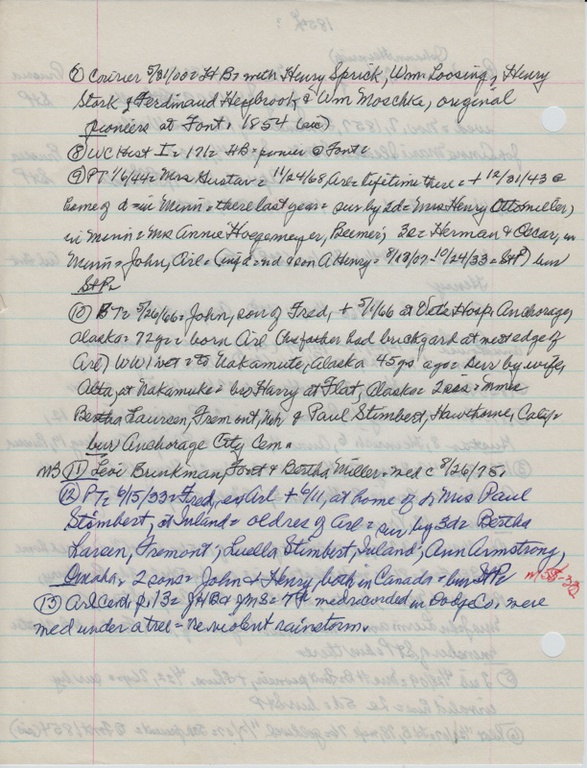 ⑦ Courier 5/31/00= H B= with Henry Sprick, Wm Loosing, Henry
Stork, Ferdinand & Wm Moschka, original
pioniers at Font, 1854 (sic)
⑧ WC Hist I= 171= HB= pionier @ Font
⑨ PT 1/6/44= Mrs Gustav= 11/24/68, Arl= lifetime there= + 12/31/43 @
home of d= in Minn= there last year= sur by 2d= Mrs Henry
in Minn= Mrs Annie Hoegemeyer, Beemer; 3s= Herman & Oscar, in
Minn= John, Arl= 8/13/07-10/24/33= StP) bur
StP
⑩ BT= 5/26/66= John, son of Fred, + 5/1/66 at Vets Hosp, Anchorage,
Alaska= 72y= born Arl (his father had brickyard at west edge of
Arl) WWI vet= to Alaska 45y ago= sur by wife,
at bro Harry at Flat, Alaska= 2 sis= Mmes
Bertha Laursen, Fremont, Neb, & Paul Stembert, Hawthorne, Calif=
bur Anchorage City Cem.
M3 ⑪ Levi Brinkman, Font & Bertha Miller= med c 8/26/75.
⑫ PT= 6/15/33= Fred, ex Arl + 6/11, at home of d, Mrs Paul
Stembert, at Inland= old res of Arl= sur by 3d= Bertha
Larsen, Fremont; Luella Stembert, Inland; Ann Armstrong,
Omaha= 2 sons= John & Henry, both in Canada= bur StP
⑬ Arl Cent p. 13= JHB & JMS= 7th med recorded in Dodge Co, were
med under a tree= violent rainstorm.